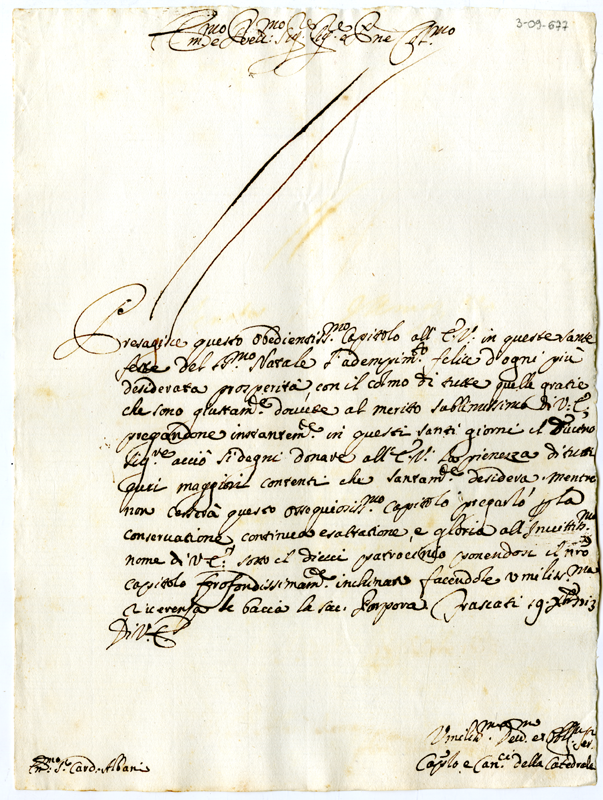 3-09-677
Em.mo e Rev.mo Sig.re Sig.re e P.ne Col.mo
Presagisce questo obedientiss.mo Capitolo all' E.V. in queste sante
feste del SS.mo Natale l'adempim.to felice d'ogni più
desiderata prosperità con il colmo di tutte quelle gratie
che sono giustam.te dovute al merito sublimissimo di V.E.
pregandone instantem.te in questi santi giorni il Divino
Sig.re acciò si degni donare all' E.V. la pienezza di tutti
quei maggiori contenti che santam.te desidera. Mentre
non cesserà questo ossequiosiss.mo Capitolo pregarlo p la
conservatione, continua esaltatione, e gloria all' Invittiss.mo
nome di V.E. sotto il di cui patrocinio ponendosi il nro
Capitolo profondissimam.te inclinato facendole umiliss.ma
riverenza le baccia la sac. Porpora Frascati 19 Xbre
Di V.E.
Umiliss.mi Dev. et Obl. Ser.
Caplo e Can.ci della Catedrale
Em.mo S.r Card. Albani